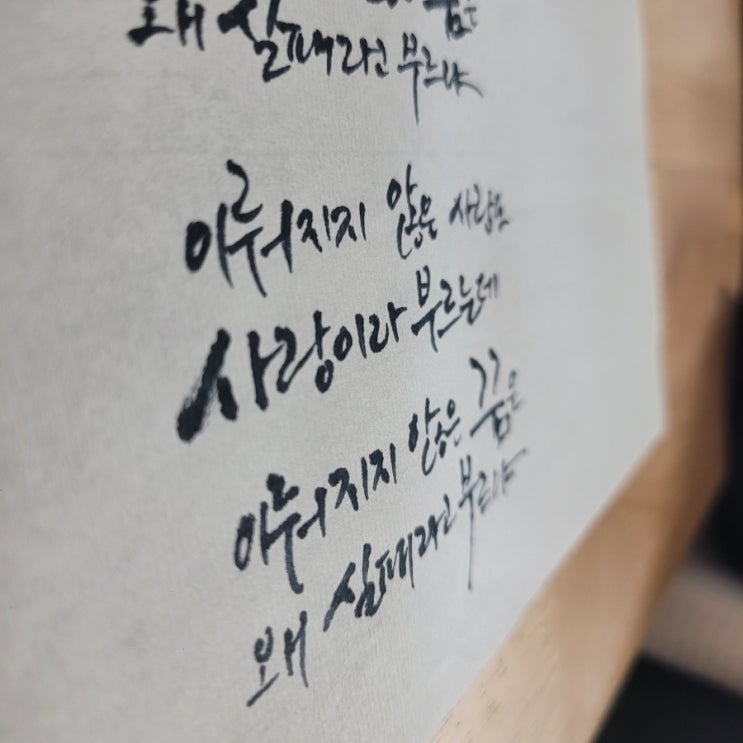 꿈은
왜 실패라고 부르냐
이뤄지지 않은 사랑도
사랑이라 부르는데
이뤄지지 않은 꿈은
왜 실패라고 부르냐